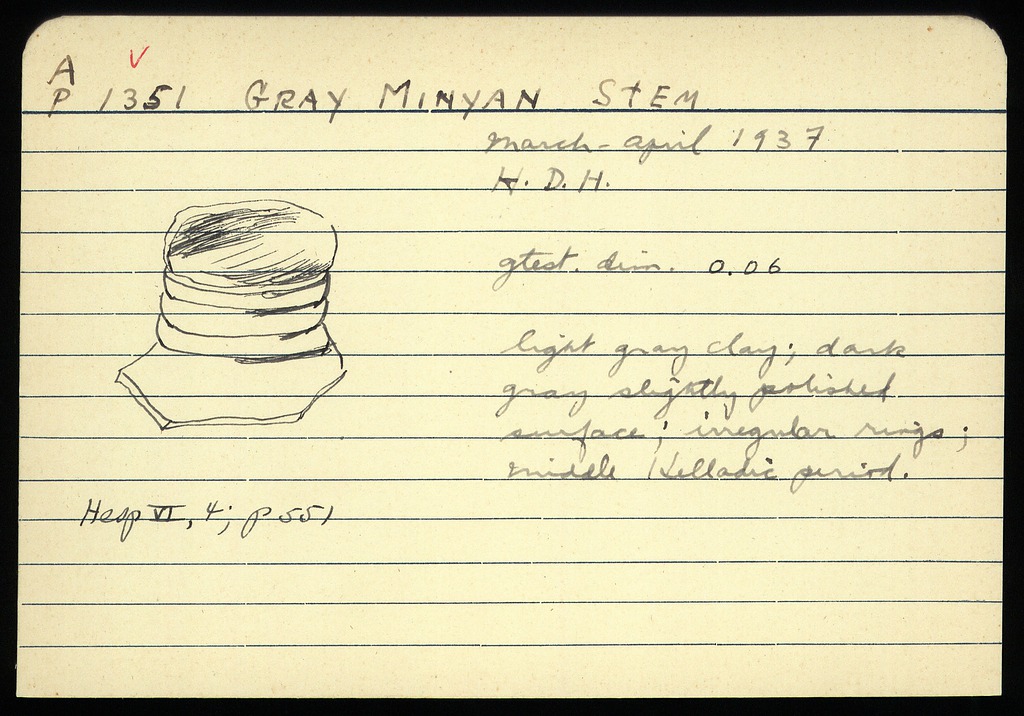 A
P 1351 GRAY MINYAN STEM
march-april 1937
H. D. H.
gtest. dim. 0.06
light gray clay; dark
gray slightly polished
surface; irregular rings;
middle Helladic period.
Hesp VI, 4; p 551